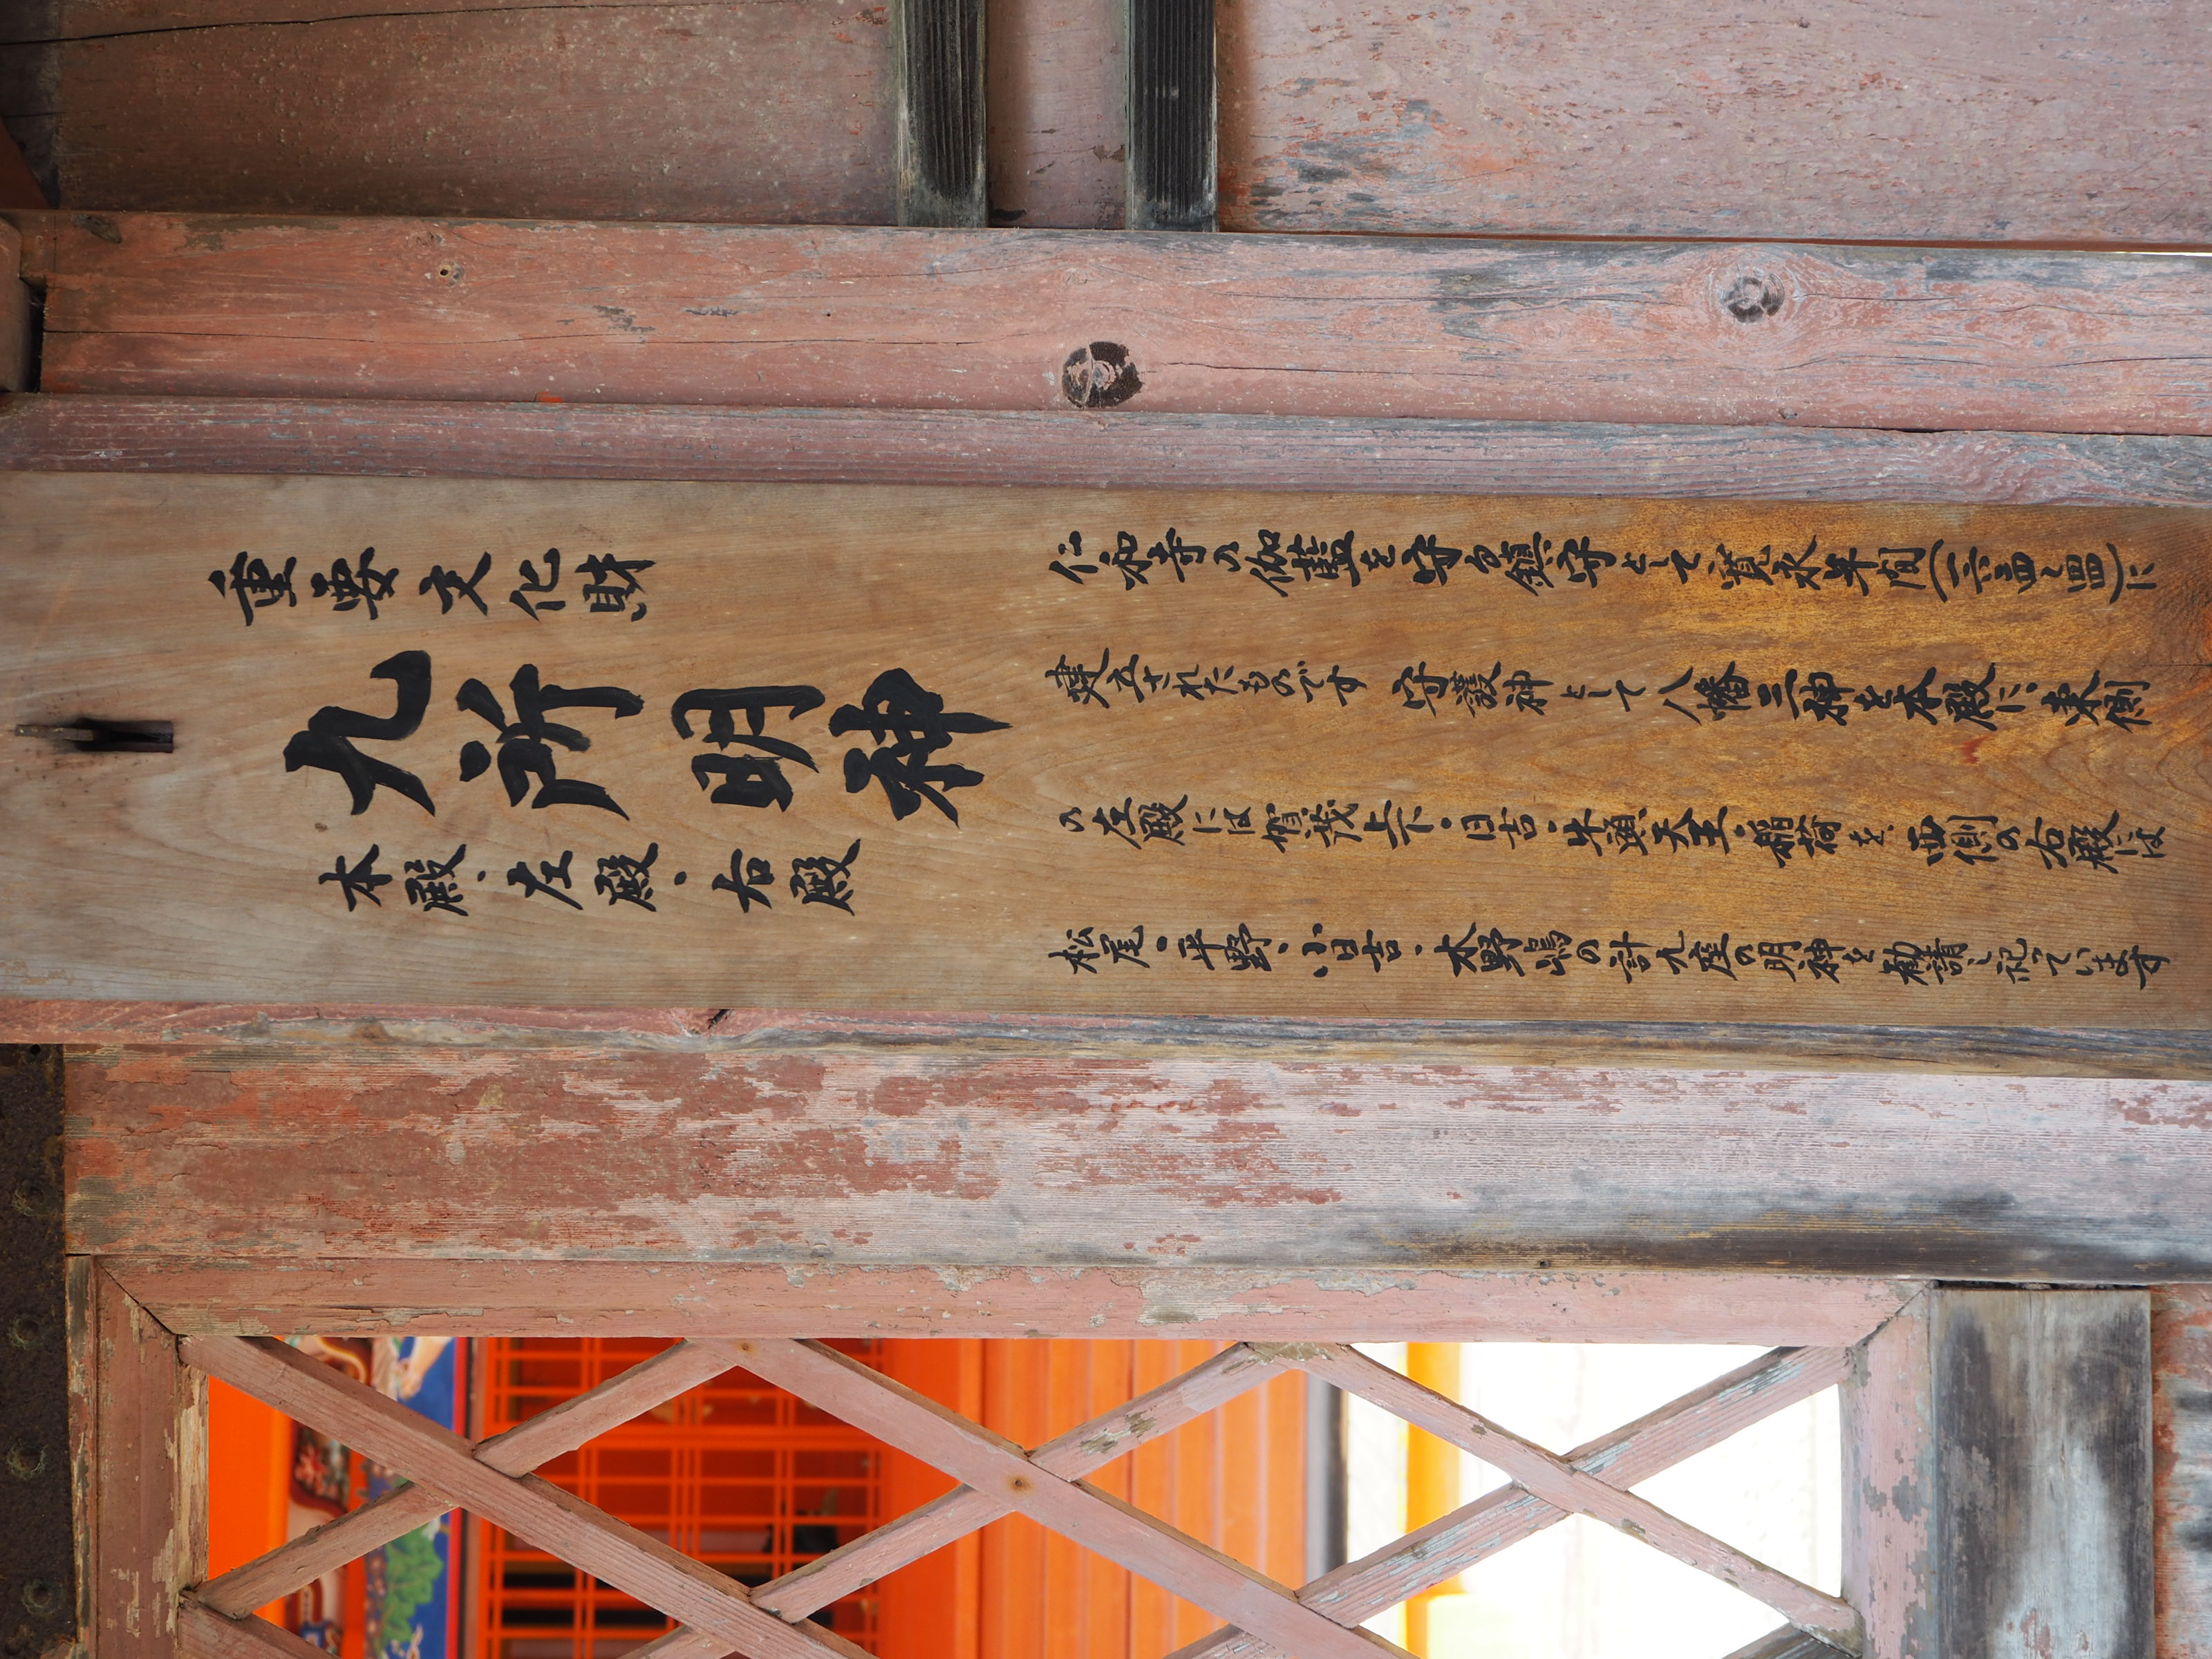 重要文化財
九所明神
本殿・左殿・右殿
仁和寺の伽藍を守る鎮守として寛永年間(一六二四〜四四)に
建立されたものです 守護神として八幡三神を本殿に、東側
の左殿には賀茂上下・日吉・牛頭天王・稲荷を、西側の右殿には
松尾・平野・小日吉・木野嶋の計九座の明神を勧請し祀っています